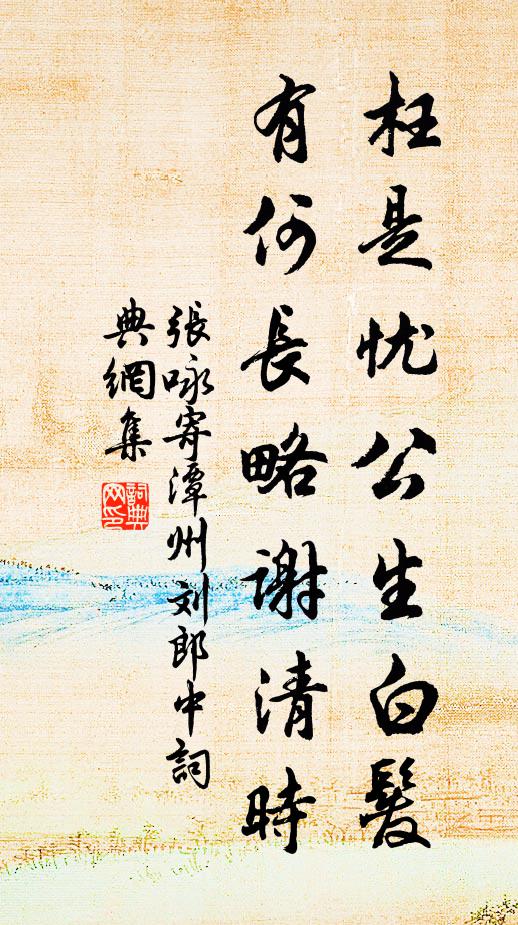 枉是忧公生白髮
有何長略謝清時
張咏寄潭州刘郎中詞
典網集
詞典
网印